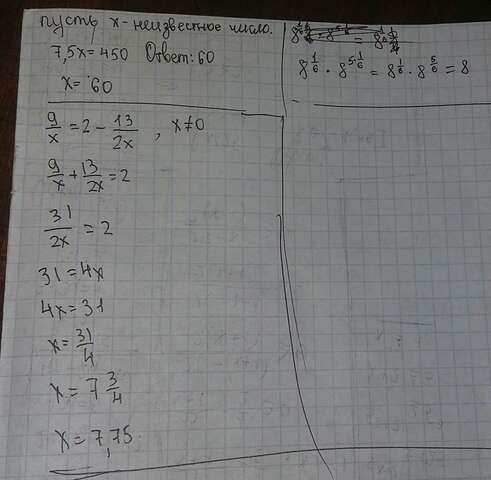 пусть x - неизвестное число.
7,5x = 450 Ответ: 60
x = 60
9/x = 2 - 13/2x , x ≠ 0
9/x + 13/2x = 2
31/2x = 2
31 = 4x
4x = 31
x = 31/4
x = 7 3/4
x = 7,75
8^(1/6) · 8^(5·1/6) = 8^(1/6) · 8^(5/6) = 8